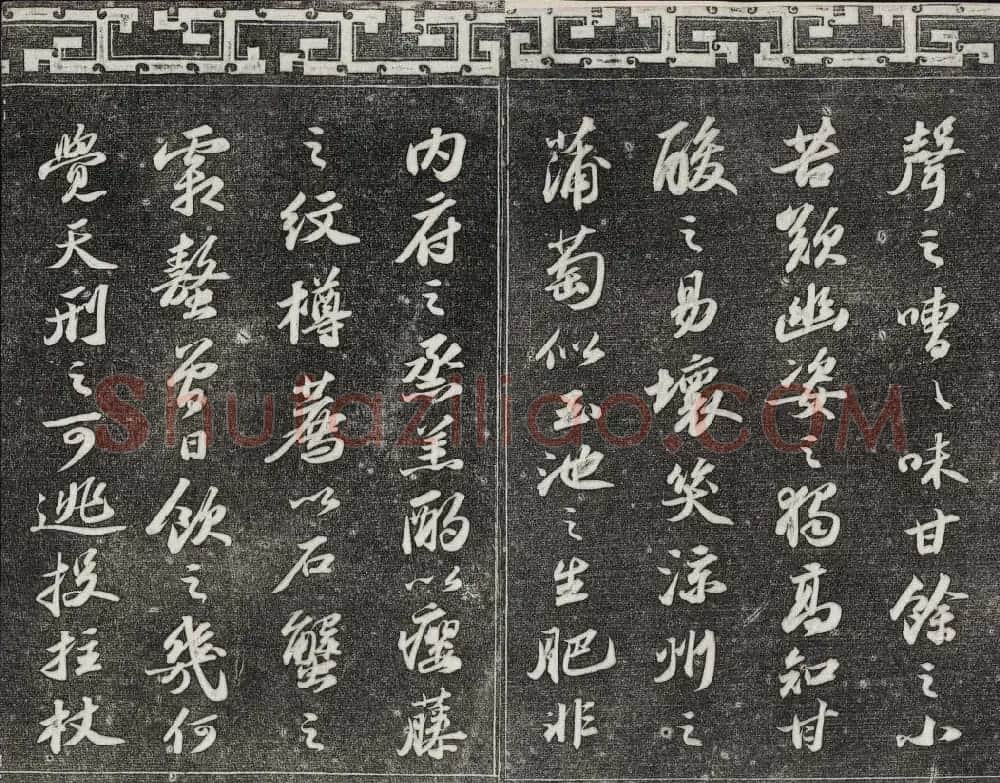 聲之嘈〻味甘餘之小
苦歎幽姿之獨高知甘
酸之易壞笑涼州之
蒲萄似玉池之生肥非
内府之烝羔酌以癭藤
之紋樽薦以石蟹之
霜螯曾日飲之幾何
覺天刑之可逃投拄杖
Shufaziliao.COM